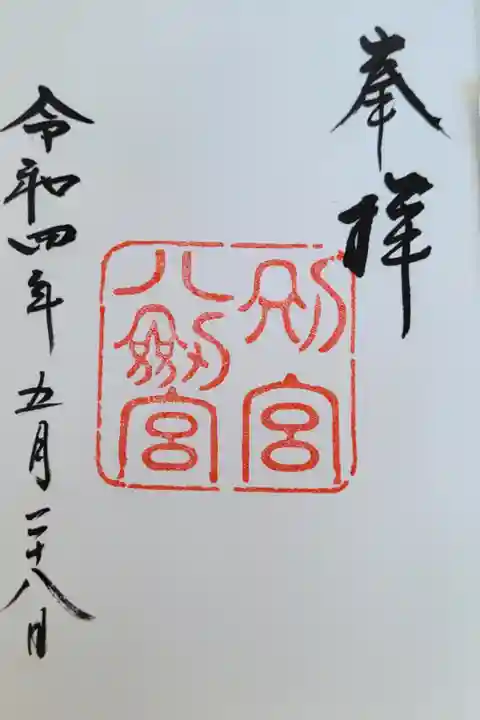 奉拝
別宮
八剱宮
令和四年五月二十八日